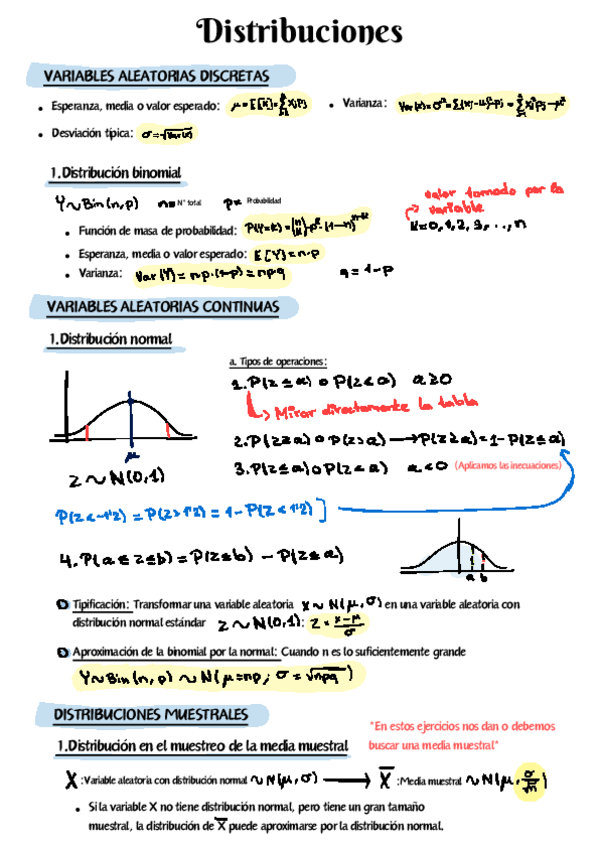 Distribuciones
VARIABLES ALEATORIAS DISCRETAS
• Esperanza, media o valor esperado: μ = E[X] = Σ xj pj • Varianza: Var(x) = σ² = Σ(xj-μ)²·pj = Σ xj² pj - μ²
• Desviación típica: σ = √Var(x)
1.Distribución binomial
Y ~ Bin(n,p) n = Nº total p = Probabilidad
valor tomado por la
variable
• Función de masa de probabilidad: P(Y=k) =
k=0,1,2,3,...,n
• Esperanza, media o valor esperado: E[Y] = n·p
• Varianza: Var(Y) = n·p·(1-p) = n·p·q q = 1-p
VARIABLES ALEATORIAS CONTINUAS
1.Distribución normal
a. Tipos de operaciones:
1. P(z ≤ a) o P(z < a) a ≥ 0
Mirar directamente la tabla
μ
2. P(z ≥ a) o P(z > a) → P(z ≥ a) = 1 - P(z ≤ a)
z ~ N(0,1)
3. P(z ≤ a) o P(z < a) a < 0 (Aplicamos las inecuaciones)
P(z < -1'2) = P(z > 1'2) = 1 - P(z < 1'2)]
4. P(a ≤ z ≤ b) = P(z ≤ b) - P(z ≤ a)
a b
Tipificación: Transformar una variable aleatoria x ~ N(μ,σ) en una variable aleatoria con
distribución normal estándar z ~ N(0,1): z = (x-μ)/σ
Aproximación de la binomial por la normal: Cuando n es lo suficientemente grande
Y ~ Bin(n,p) ~ N(μ=np; σ = √npq)
DISTRIBUCIONES MUESTRALES
"En estos ejercicios nos dan o debemos
buscar una media muestral"
1.Distribución en el muestreo de la media muestral
X :Variable aleatoria con distribución normal ~ N(μ,σ) → X̄ :Media muestral ~ N(μ, σ/√n)
• Si la variable X no tiene distribución normal, pero tiene un gran tamaño
muestral, la distribución de X̄ puede aproximarse por la distribución normal.